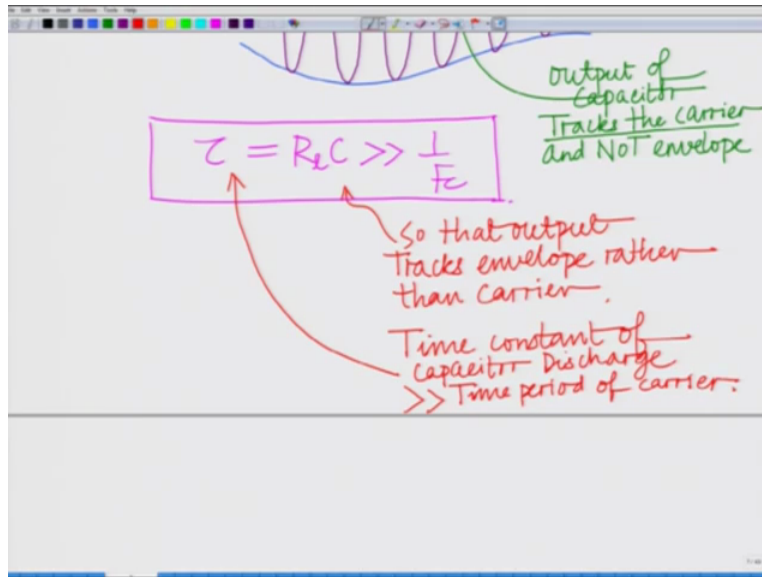 output of
Capacitor
Tracks the carrier
and NOT envelope
τ = R_L C >> 1/Fc
So that output
Tracks envelope rather
than carrier.
Time constant of
capacitor Discharge
>> Time period of carrier.